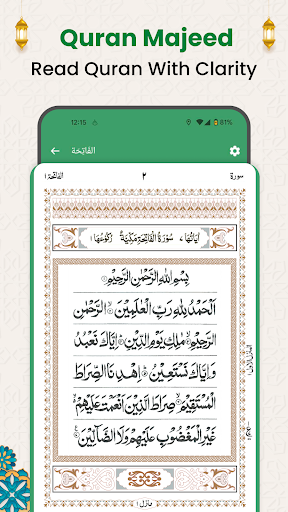 Quran Majeed
Read Quran With Clarity
12:15 81%
الفاتحة
الفاتحة ١ ٢ سورة
اٰیَاتُهَا ٧ سُوْرَةُ الْفَاتِحَةِ مَكِّیَّةٌ رُكُوْعُهَا ١
بِسْمِ اللهِ الرَّحْمٰنِ الرَّحِیْمِ
اَلْحَمْدُ لِلّٰهِ رَبِّ الْعٰلَمِیْنَ ۝ الرَّحْمٰنِ
الرَّحِیْمِ ۝ مٰلِكِ یَوْمِ الدِّیْنِ ۝ اِیَّاكَ نَعْبُدُ
وَ اِیَّاكَ نَسْتَعِیْنُ ۝ اِهْدِنَا الصِّرَاطَ
الْمُسْتَقِیْمَ ۝ صِرَاطَ الَّذِیْنَ اَنْعَمْتَ عَلَیْهِمْ
غَیْرِ الْمَغْضُوْبِ عَلَیْهِمْ وَ لَا الضَّآلِّیْنَ ۝
منزل ١